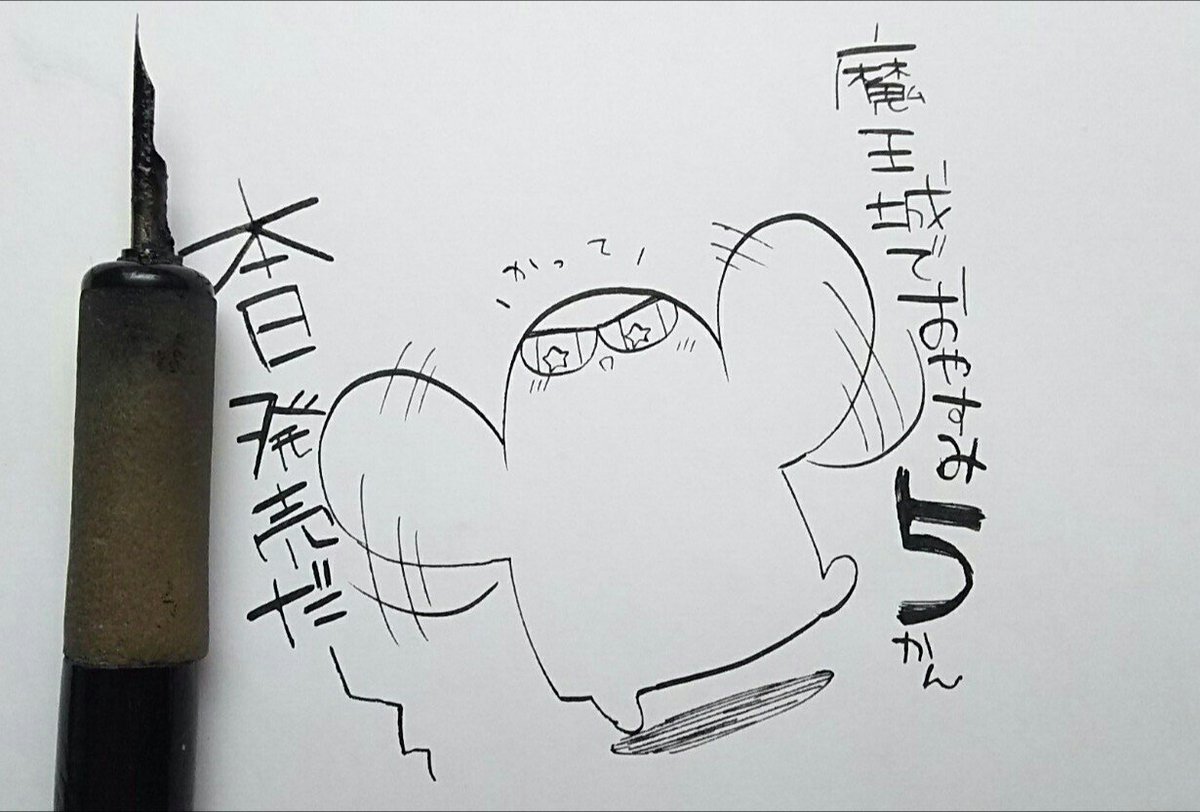 魔王城でおやすみ
5
かん
かってー
本日発売だ